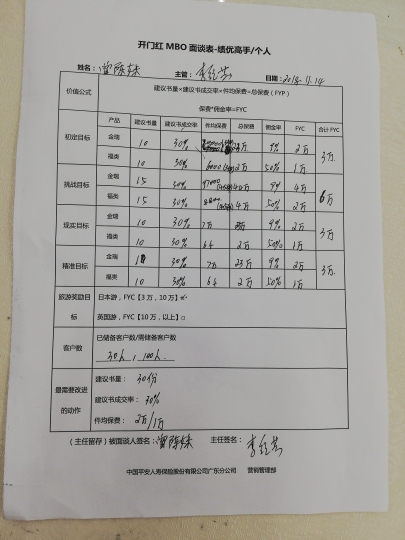 开门红 MBO 面谈表-绩优高手/个人
姓名： 主管： 日期：2018.11.14
价值公式
建议书量×建议书成交率×件均保费=总保费（FYP）
保费*佣金率=FYC
产品 建议书量 建议书成交率 件均保费 总保费 佣金率 FYC 合计 FYC
初定目标 金瑞 10 30% 9% 2万 3万
福类 10 30% 2万 50% 1万
挑战目标 金瑞 15 30% 9% 4万 6万
福类 15 30% 4万 50% 2万
现实目标 金瑞 10 30% 7万 9% 2万 3万
福类 10 30% 2万 50% 1万
精准目标 金瑞 30% 7万 23万 9% 2万 3万
福类 10 30% 2万 50% 1万
旅游奖励目标
日本游，FYC【3 万，10 万】
英国游，FYC【10 万，以上】□
客户数
已储备客户数/需储备客户数
30人，100人
最需要改进的动作
建议书量：30份
建议书成交率：30%
件均保费：2万/1万
（主任留存）被面谈人签名： 主任签名：
中国平安人寿保险股份有限公司广东分公司 营销管理部